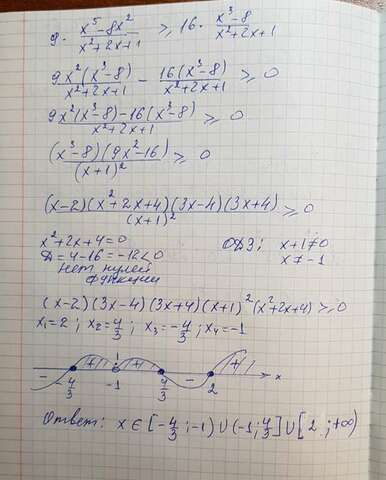 9 · (x⁵-8x²)/(x²+2x+1) ≥ 16 · (x³-8)/(x²+2x+1)
9x²(x³-8)/(x²+2x+1) - 16(x³-8)/(x²+2x+1) ≥ 0
(9x²(x³-8)-16(x³-8))/(x²+2x+1) ≥ 0
(x³-8)(9x²-16)/(x+1)² ≥ 0
(x-2)(x²+2x+4)(3x-4)(3x+4)/(x+1)² ≥ 0
x²+2x+4=0 ОДЗ: x+1≠0
Д=4-16=-12<0 x≠-1
нет нулей
функции
(x-2)(3x-4)(3x+4)(x+1)²(x²+2x+4)≥0
x₁=2; x₂=4/3; x₃=-4/3; x₄=-1
- + + - + x
-4/3 -1 4/3 2
Ответ: x∈[-4/3;-1)∪(-1;4/3]∪[2;+∞)